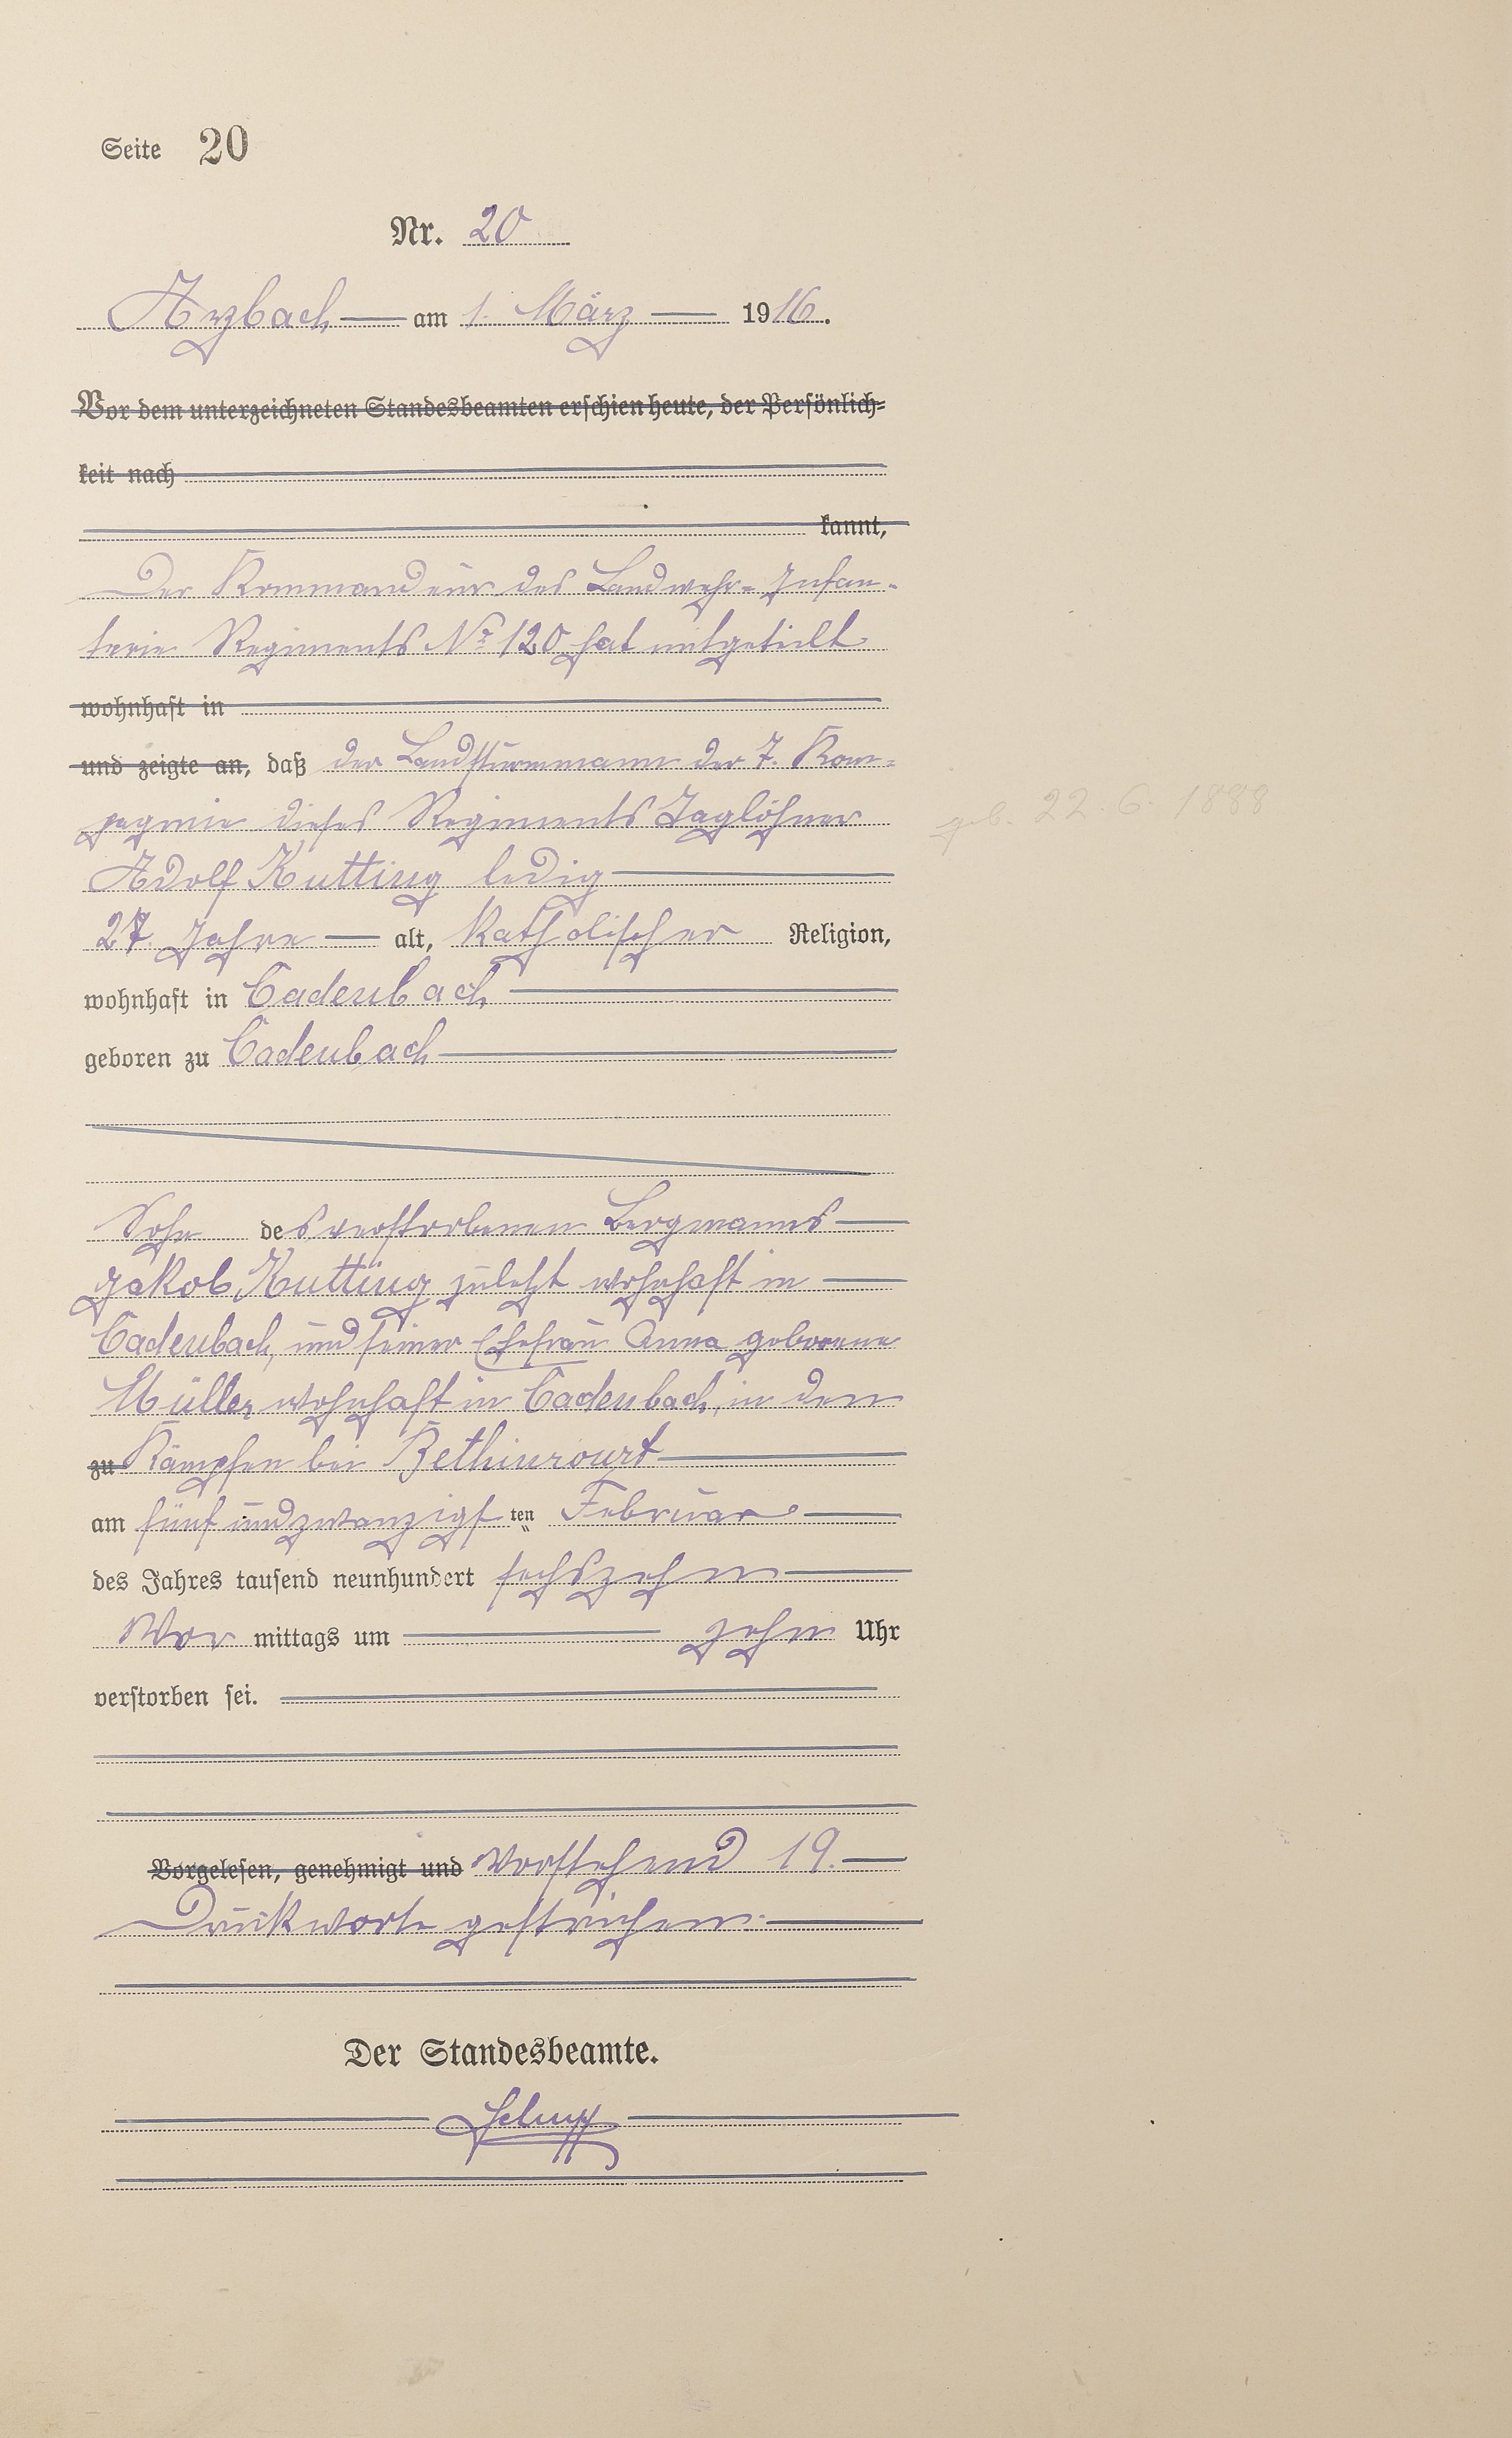 Seite 20
Nr. 20
Arzbach am 1. März 1916.
Vor dem unterzeichneten Standesbeamten erschien heute, der Persönlich=
keit nach
kannt,
Der Kommandeur des Landwehr=Infan-
terie Regiments No 120 hat mitgeteilt
wohnhaft in
und zeigte an, daß der Landsturmmann der 7. Kom=
pagnie dieses Regiments Taglöhner
Adolf Kutting ledig
geb. 22. 6. 1888
27 Jahre alt, katholischer Religion,
wohnhaft in Cadenbach
geboren zu Cadenbach
Sohn des verstorbenen Bergmanns
Jakob Kutting zuletzt wohnhaft in
Cadenbach, und seiner Ehefrau Anna geborene
Müller wohnhaft in Cadenbach, in den
zu Kämpfen bei Bethincourt
am fünfundzwanzigsten Februar
des Jahres tausend neunhundert sechszehn
Vor mittags um zehn Uhr
verstorben sei.
Vorgelesen, genehmigt und Vorstehend 19.
Druckworte gestrichen.
Der Standesbeamte.